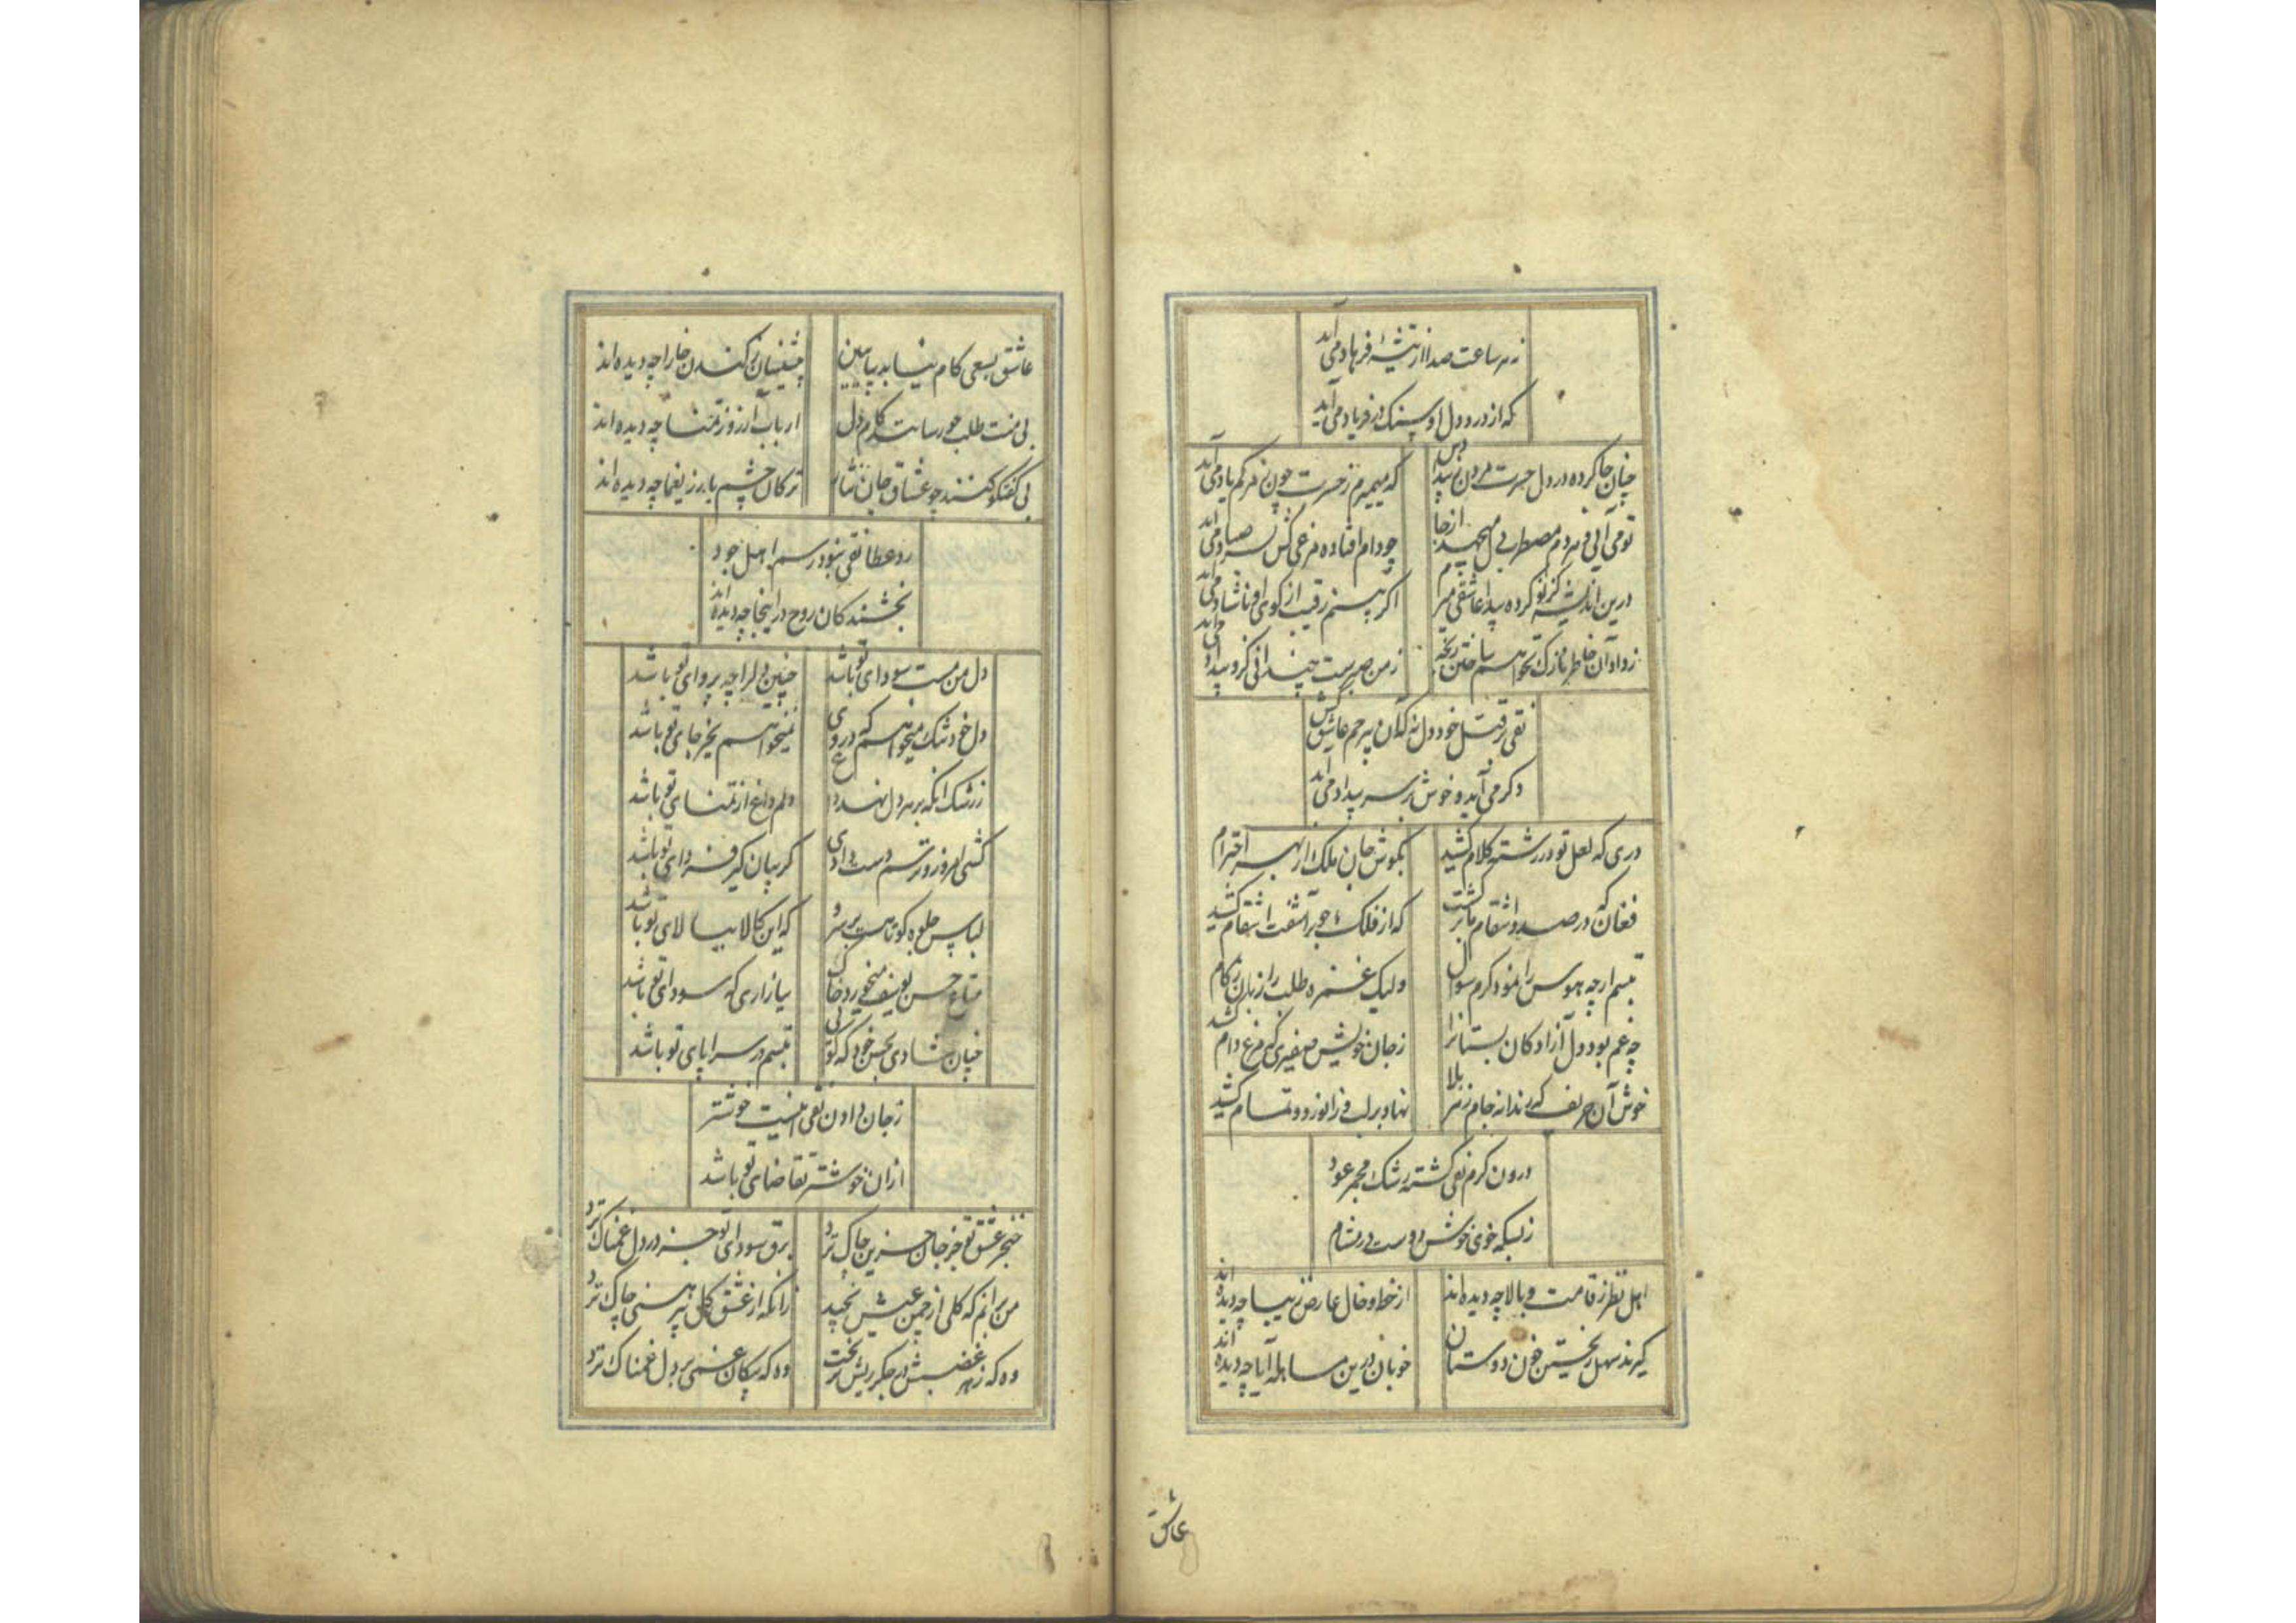 نه هر ساعت صدا از تیشهٔ فرهاد می‌آید
که از درد دل او سنک در فریاد می‌آید
چنان جا کرده در دل حسرت مردن
که میمیرم ز حسرت چون ز مرکم یاد می‌آید
تو می آیی و مردم مضطرب از جا
چو دام افتاده مرغی کش بسر صیاد می‌آید
درین اندیشه کز نو کرده پیدا عاشقی میرم
اکر بینم رقیب از کوی او ناشاد می‌آید
زمن صبرست چندانی کزو بیداد می‌آید
تقی در قتل خود دل نه کان بیرحم عاشق کش
دکر می‌آید و خوش بر سر بیداد می‌آید
دری که لعل تو در رشته کلام کشید
بکوش جان ملک از بهر احترام کشید
فغان که در صدد انتقام ما برکشت
که از فلک چو برآشفت انتقام کشید
تبسم ارچه هوس را نمود کرم سوال
ولیک غمزه طلب را زبان ز کام کشید
چه غم بود دل آزادکان بستانرا
زجان خویش صفیری که مرغ دام کشید
خوش آن حریف که رندانه جام زهر بلا
نهاد بر لب و زانو زد و تمام کشید
درون کرم تقی کشته رشک مجمر عود
زبسکه خوی خوش دوست در مشام
اهل نظر ز قامت و بالا چه دیده‌اند
از خط و خال عارض زیبا چه دیده‌اند
کیرند سهل ریختن خون دوستان
خوبان درین مسامله آیا چه دیده‌اند
عاشق
عاشق بسعی کام نیابد بیا ببین
تیشه‌نیسان ز کندن خارا چه دیده‌اند
بی منت طلب چو رسانند کام دل
ارباب آرزو ز تمنا چه دیده‌اند
بی کفتکو کنند چو عشاق جان نثار
ترکان چشم یار ز یغما چه دیده‌اند
رد عطا تقی نبود رسم اهل جود
بخشندکان روح در اینجا چه دیده‌اند
دل من مست سودای تو باشد
چنین دلرا چه پروای تو باشد
دل خود تنک میخواهم که در وی
نمیخواهم بجز جای تو باشد
زرشک انکه بر هر دل نهد داغ
دلم داغ از تمنای تو باشد
کشی امروز و ترسم دست دادی
کریبان کیر فردای تو باشد
لباس جلوه کوتاهست بر سرو
که این کالا ببالای تو باشد
متاع حسن یوسف میخورد خاک
ببازاری که سودای تو باشد
چنان شادی بحسن خود که کویی
تبسم در سراپای تو باشد
زجان دادن تقی را نیست خوشتر
ازان خوشتر تقاضای تو باشد
خنجر عشق تو جز جان حزین چاک نزد
برق سودای تو جز در دل غمناک نزد
من برانم که کلی از چمن عیش نچید
زانکه از عشق کلی پیرهنی چاک نزد
وه که زهر غضبش در جکر ریش نریخت
وه که پیکان غمی بر دل غمناک نزد